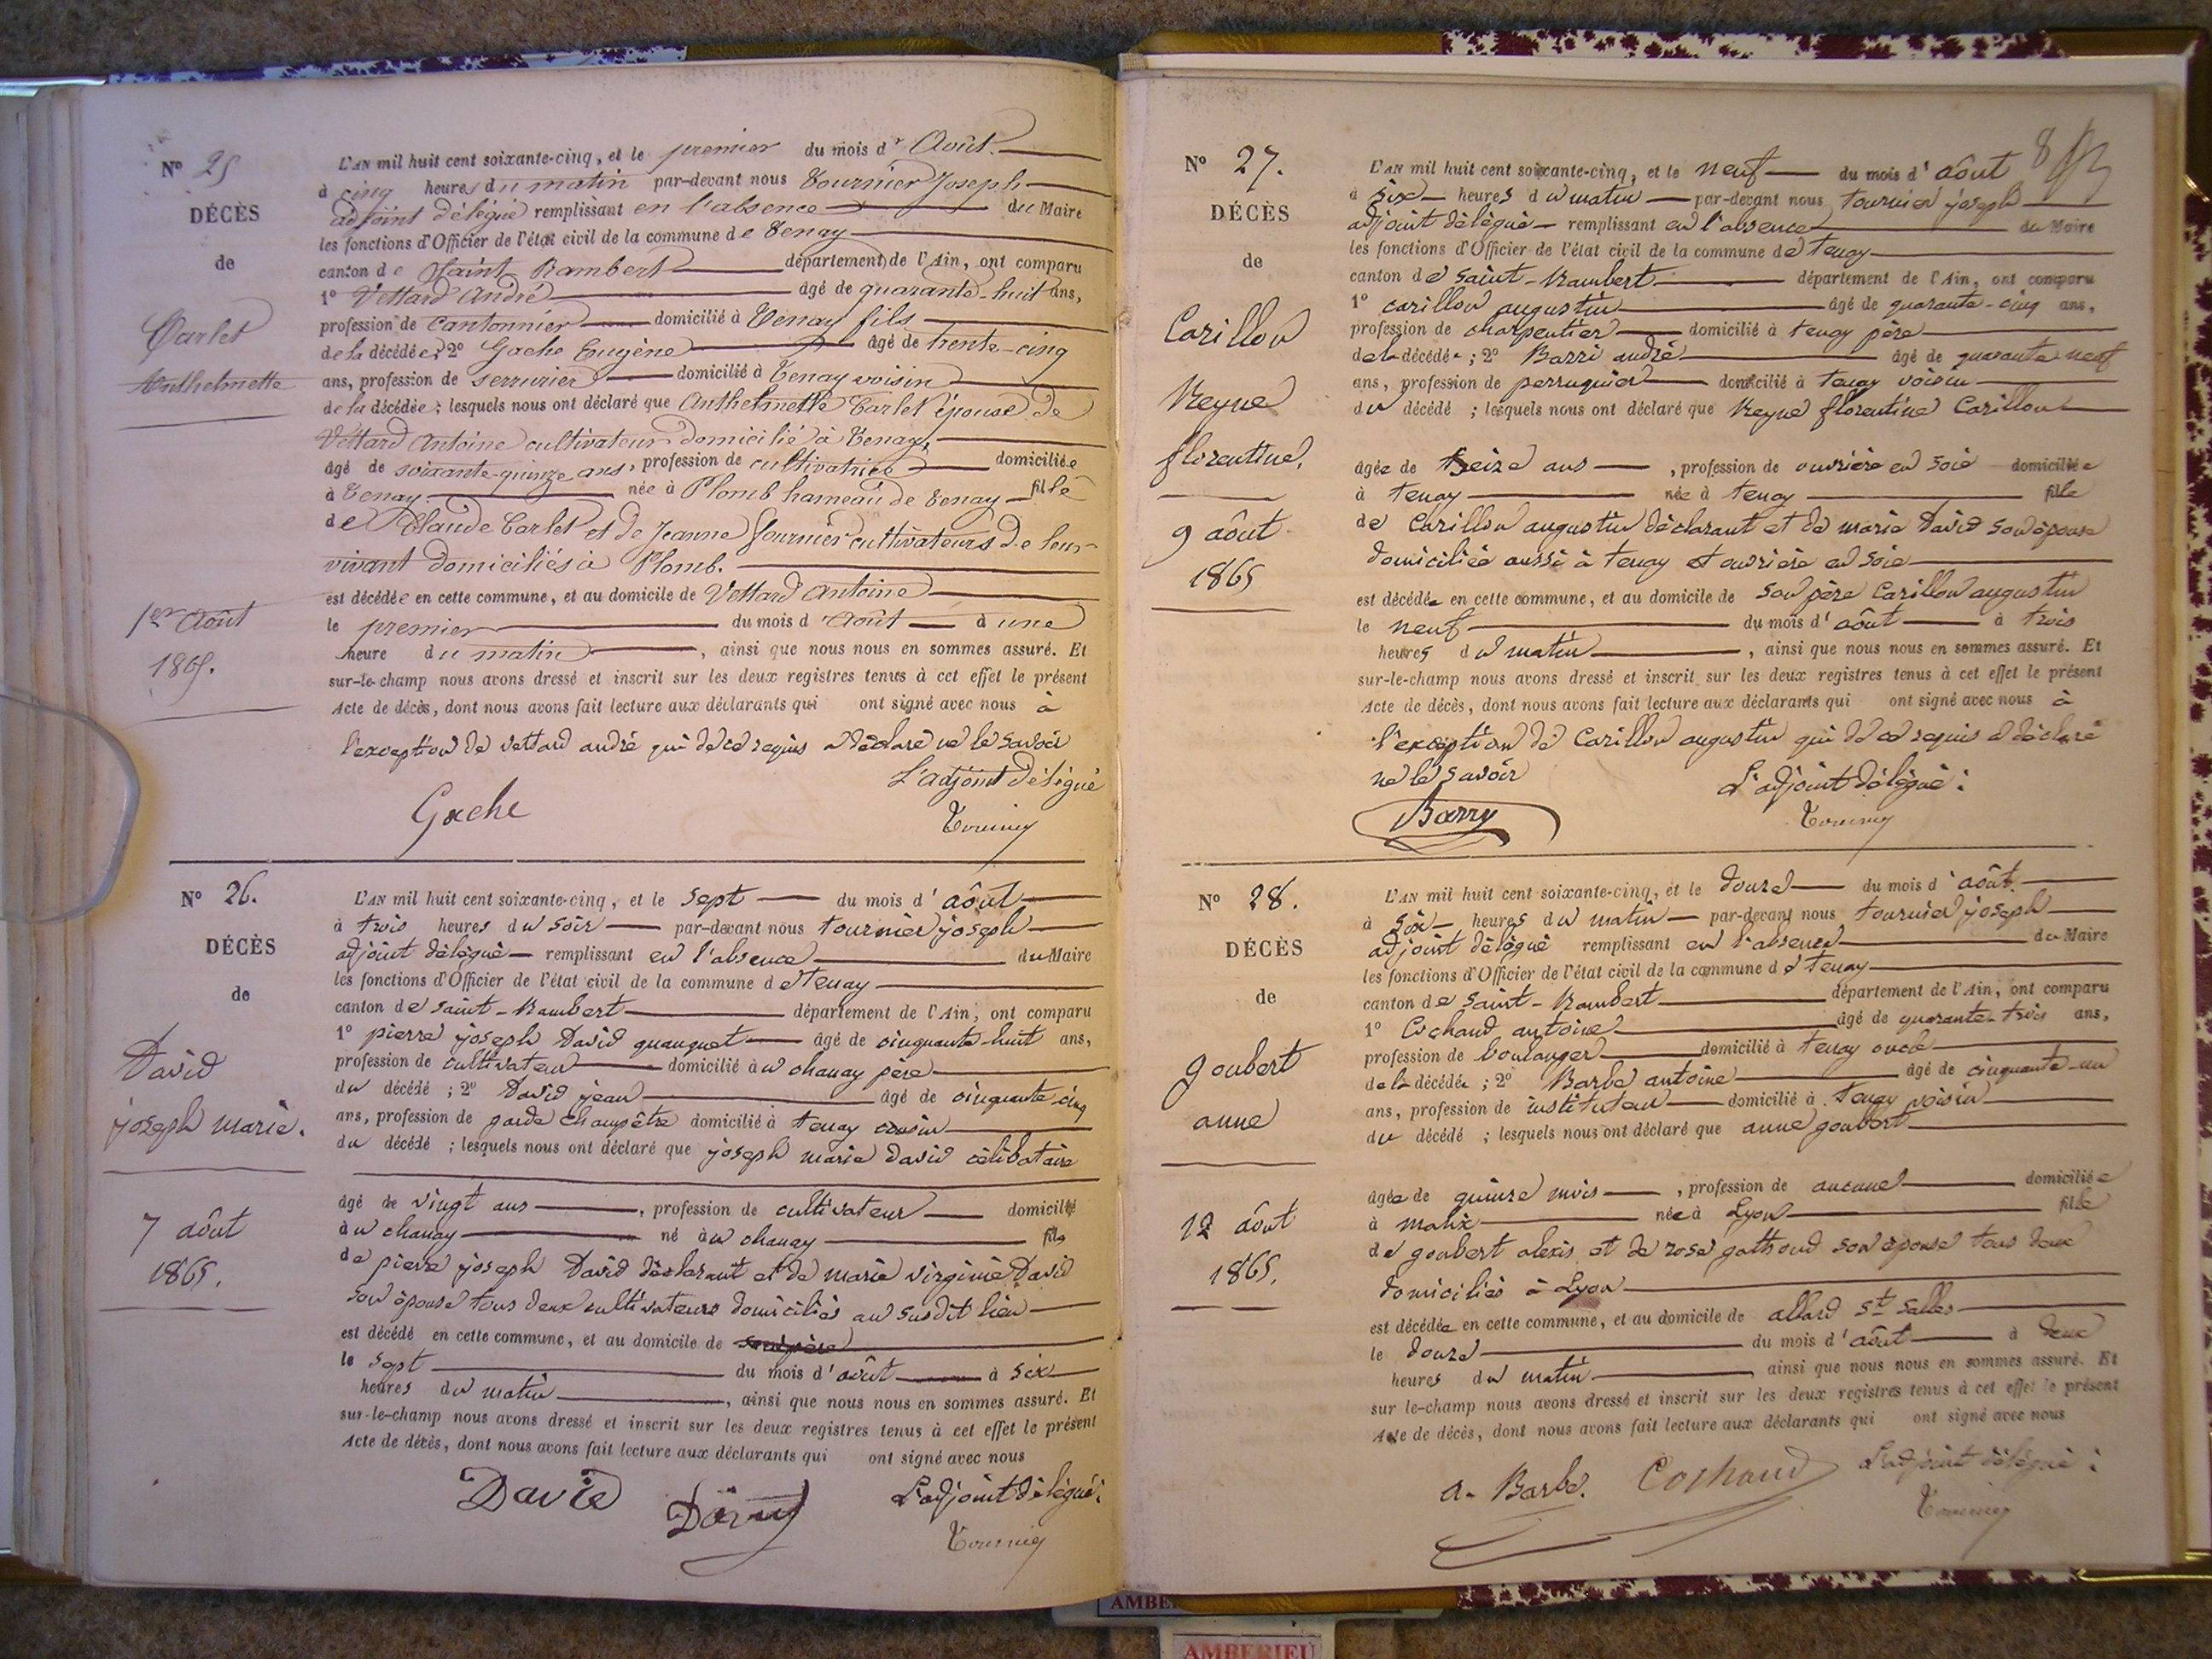 Nº 25
DÉCÈS
de
Carlet
Anthelmette
1er Août
1865.
L'AN mil huit cent soixante-cinq, et le premier du mois d' Août.
à cinq heures du matin par-devant nous Tournier Joseph
adjoint délégué remplissant en l'absence du Maire
les fonctions d'Officier de l'état civil de la commune de Tenay
canton de Saint Rambert département de l'Ain, ont comparu
1º Vettard André âgé de quarante-huit ans,
profession de cantonnier domicilié à Tenay fils
de la décédée; 2º Gache Eugène âgé de trente-cinq
ans, profession de serrurier domicilié à Tenay voisin
de la décédée; lesquels nous ont déclaré que Anthelmette Carlet épouse de
Vettard Antoine cultivateur domicilié à Tenay,
âgé de soixante-quinze ans, profession de cultivatrice domiciliée
à Tenay née à Plomb hameau de Tenay fille
de Claude Carlet et de Jeanne fournier cultivateurs de leur
vivant domiciliés à Plomb.
est décédée en cette commune, et au domicile de Vettard Antoine
le premier du mois d'Août à une
heure du matin, ainsi que nous nous en sommes assuré. Et
sur-le-champ nous avons dressé et inscrit sur les deux registres tenus à cet effet le présent
Acte de décès, dont nous avons fait lecture aux déclarants qui ont signé avec nous à
l'exception de Vettard andré qui de ce requis a déclaré ne le savoir
L'adjoint délégué
Gache Tournier
Nº 26.
DÉCÈS
de
David
joseph marie.
7 aôut
1865.
L'AN mil huit cent soixante-cinq, et le sept du mois d'aôut
à trois heures du soir par-devant nous tournier joseph
adjoint délégué remplissant en l'absence du Maire
les fonctions d'Officier de l'état civil de la commune de Tenay
canton de saint-Rambert département de l'Ain, ont comparu
1º pierre joseph David quanquet âgé de cinquante-huit ans,
profession de cultivateur domicilié à u chanay père
du décédé; 2º David jean âgé de cinquante cinq
ans, profession de garde champêtre domicilié à tenay cousin
du décédé; lesquels nous ont déclaré que joseph marie david célibataire
âgé de vingt ans, profession de cultivateur domicilié
à u chanay né à u chanay fils
de pierre joseph David déclarant et de marie virginie David
son épouse tous deux cultivateurs domiciliés au susdit lieu
est décédé en cette commune, et au domicile de son père
le sept du mois d'aôut à six
heures du matin, ainsi que nous nous en sommes assuré. Et
sur-le-champ nous avons dressé et inscrit sur les deux registres tenus à cet effet le présent
Acte de décès, dont nous avons fait lecture aux déclarants qui ont signé avec nous
David L'adjoint délégué:
Tournier
8
Nº 27.
DÉCÈS
de
Carillon
Reyne
florentine.
9 aôut
1865
L'AN mil huit cent soixante-cinq, et le neuf du mois d'aôut
à six heures du matin par-devant nous tournier joseph
adjoint délégué remplissant en l'absence du Maire
les fonctions d'Officier de l'état civil de la commune de tenay
canton de saint-Rambert département de l'Ain, ont comparu
1º carillon augustin âgé de quarante-cinq ans,
profession de charpentier domicilié à tenay père
de la décédée; 2º Barri andré âgé de quarante neuf
ans, profession de perruquier domicilié à tenay voisin
du décédé; lesquels nous ont déclaré que Reyne florentine Carillon
âgée de treize ans, profession de ouvrière en soie domiciliée
à tenay née à tenay fille
de Carillon augustin déclarant et de marie David son épouse
domiciliée aussi à tenay et ouvrière en soie
est décédée en cette commune, et au domicile de son père Carillon augustin
le neuf du mois d'aôut à trois
heures du matin, ainsi que nous nous en sommes assuré. Et
sur-le-champ nous avons dressé et inscrit sur les deux registres tenus à cet effet le présent
Acte de décès, dont nous avons fait lecture aux déclarants qui ont signé avec nous à
l'exception de Carillon augustin qui de ce requis a déclaré
ne le savoir L'adjoint délégué:
Barry Tournier
Nº 28.
DÉCÈS
de
goubert
anne
12 aôut
1865.
L'AN mil huit cent soixante-cinq, et le douze du mois d'aôut.
à six heures du matin par-devant nous tournier joseph
adjoint délégué remplissant en l'absence du Maire
les fonctions d'Officier de l'état civil de la commune de Tenay
canton de saint-Rambert département de l'Ain, ont comparu
1º Cochaud antoine âgé de quarante-trois ans,
profession de boulanger domicilié à tenay oncle
de la décédée; 2º Barbe antoine âgé de cinquante-un
ans, profession de instituteur domicilié à tenay voisin
du décédé; lesquels nous ont déclaré que anne goubert
âgée de quinze mois, profession de aucune domiciliée
à malix née à Lyon fille
de goubert alexis et de rose son épouse tous deux
domiciliés à Lyon
est décédée en cette commune, et au domicile de allard St salles
le douze du mois d'aôut à deux
heures du matin ainsi que nous nous en sommes assuré. Et
sur le-champ nous avons dressé et inscrit sur les deux registres tenus à cet effet le présent
Acte de décès, dont nous avons fait lecture aux déclarants qui ont signé avec nous
a. Barbe. Cochaud L'adjoint délégué:
Tournier
AMBE
AMBERIEU